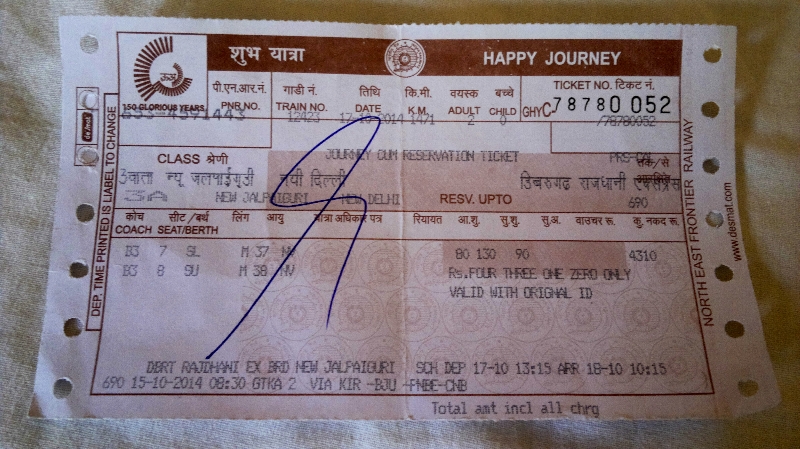 शुभ यात्रा HAPPY JOURNEY
150 GLORIOUS YEARS
पी.एन.आर.नं. गाडी नं. तिथि कि.मी. वयस्क बच्चे TICKET NO. टिकट नं.
PNR NO. TRAIN NO. DATE K.M. ADULT CHILD GHYC 78780052
653-4591443 12423 17-10-2014 1471 2 0 /78780052
JOURNEY CUM RESERVATION TICKET PRS-CAL
CLASS श्रेणी तक/से
3वाता न्यू जलपाईगुड़ी नयी दिल्ली डिब्रूगढ राजधानी एक्सप्रेस
3A NEW JALPAIGURI NEW DELHI RESV. UPTO 690
कोच सीट/बर्थ लिंग आयु यात्रा अधिकार पत्र रियायत आ.शु. सु.शु. सु.अ. वाउचर रू. कु. नकद रू.
COACH SEAT/BERTH
B3 7 SL M 37 NV 80 130 90 4310
B3 8 SU M 38 NV Rs.FOUR THREE ONE ZERO ONLY
VALID WITH ORIGNAL ID
DBRT RAJDHANI EX BRD NEW JALPAIGURI SCH DEP 17-10 13:15 ARR 18-10 10:15
690 15-10-2014 08:30 GTKA 2 VIA KIR -BJU -PNBE-CNB
Total amt incl all chrg
DEP. TIME PRINTED IS LIABLE TO CHANGE
desmat
NORTH EAST FRONTIER RAILWAY
www.desmat.com